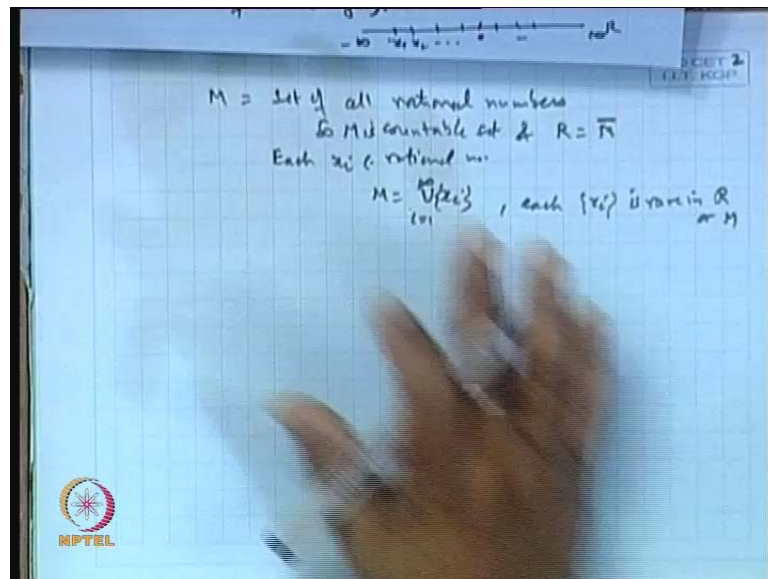 -∞ x₁ x₂ ... ∞ R
CET 2
I.I.T. KGP
M = Set of all rational numbers
So M is countable set & R = M̅
Each xᵢ (- rational no.
M = ∞∪i=1 {xᵢ} , each {xᵢ} is rare in Q
or M
NPTEL